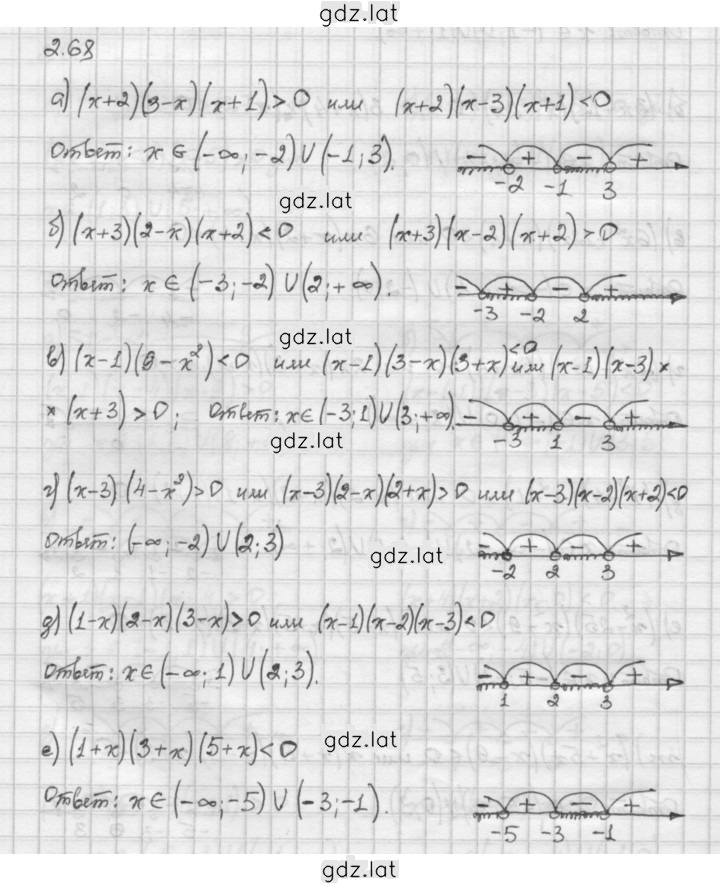 gdz.lat
2.68
а) (x+2)(3-x)(x+1)>0 или (x+2)(x-3)(x+1)<0
Ответ: x ∈ (-∞;-2) ∪ (-1;3).
- + - +
-2 -1 3
gdz.lat
б) (x+3)(2-x)(x+2)<0 или (x+3)(x-2)(x+2)>0
Ответ: x ∈ (-3;-2) ∪ (2;+∞).
- + - +
-3 -2 2
gdz.lat
в) (x-1)(9-x²)<0 или (x-1)(3-x)(3+x)<0 или (x-1)(x-3)×
×(x+3)>0; Ответ: x∈(-3;1)∪(3;+∞).
- + - +
-3 1 3
gdz.lat
г) (x-3)(4-x²)>0 или (x-3)(2-x)(2+x)>0 или (x-3)(x-2)(x+2)<0
Ответ: (-∞;-2) ∪ (2;3)
gdz.lat
- + - +
-2 2 3
д) (1-x)(2-x)(3-x)>0 или (x-1)(x-2)(x-3)<0
Ответ: x∈(-∞;1) ∪ (2;3).
- + - +
1 2 3
е) (1+x)(3+x)(5+x)<0
gdz.lat
Ответ: x∈(-∞;-5) ∪ (-3;-1).
- + - +
-5 -3 -1
gdz.lat